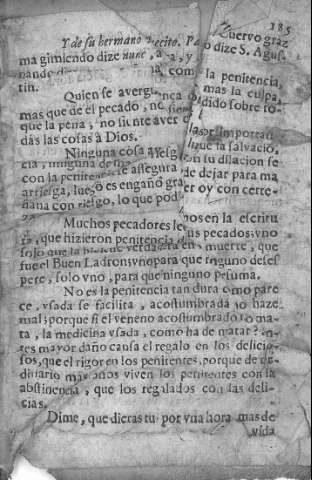 185
Y de su hermano
Cuervo graz
ma gimiendo dize nunc, a
o dize S. Agus
tin.
com la penitencia,
Quien se averguença
mas la culpa,
mas que de el pecado, no sien
dido sobre to-
que la pena, no siente aver
das las cosas à Dios.
importan
Ninguna cosa asseg
que la salvacio,
cia, ninguna
n su dilacion se
con la penitencia se assegura
de dejar para ma
arriesga, luego es engaño gra
er oy con certe-
ñana con riesgo, lo que pod
Muchos pecadores le
mos en la escritu
ra, que hizieron penitencia
us pecados: vno
solo que la
verdadera en
muerte, que
fue el Buen Ladron: vno para que ninguno deses
pere, solo vno, para que ninguno pesuma.
No es la penitencia tan dura como pare
ce, vsada se facilita, acostumbrada no haze
mal; porque si el veneno acostumbrado no ma-
ta, la medicina vsada, como ha de matar? An-
tes mayor daño causa el regalo en los delicio-
sos, que el rigor en los penitentes, porque de or-
dinario mas años viven los penitentes con la
abstinencia, que los regalados con sus deli-
cias.
Dime, que dieras tu por vna hora mas de
vida